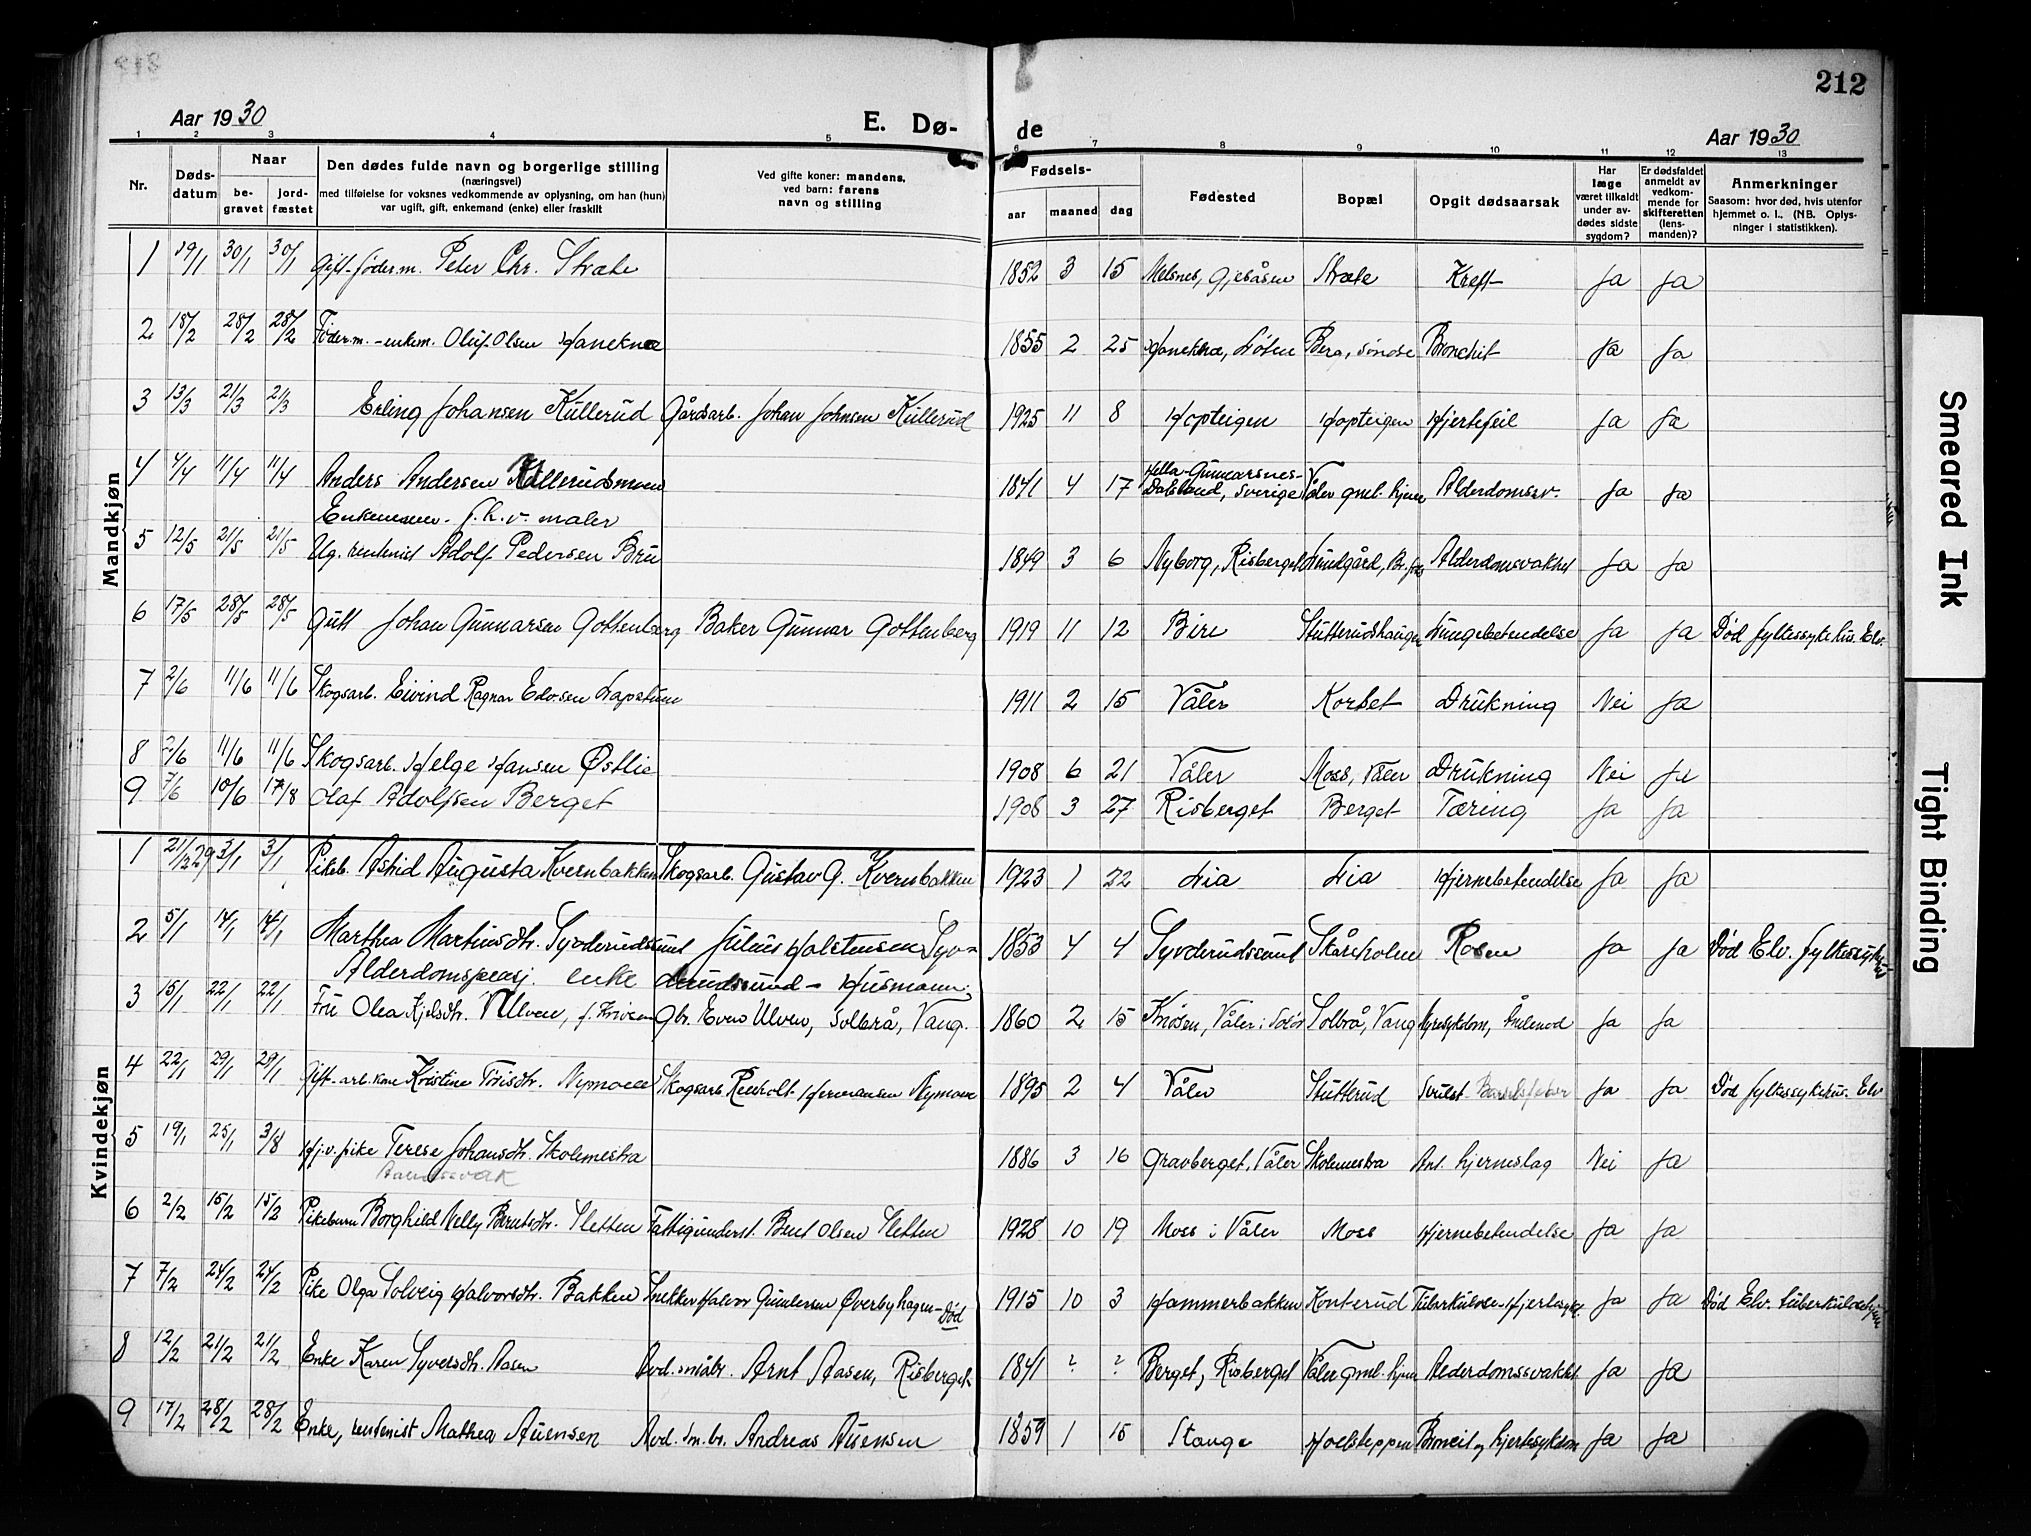 212
Aar 1930 E. Dø- de Aar 1930
1 2 3 4 5 6 7 8 9 10 11 12 13
Nr. Døds-datum Naar be-gravet jord-fæstet Den dødes fulde navn og borgerlige stilling (næringsvei) med tilføielse for voksnes vedkommende av oplysning, om han (hun) var ugift, gift, enkemand (enke) eller fraskilt Ved gifte koner: mandens, ved barn: farens navn og stilling Fødsels- aar maaned dag Fødested Bopæl Opgit dødsaarsak Har læge været tilkaldt under av-dødes sidste sygdom? Er dødsfaldet anmeldt av vedkom-mende for skifteretten (lens-manden)? Anmerkninger Saasom: hvor død, hvis utenfor hjemmet o. l., (NB. Oplys-ninger i statistikken).
Mandkjøn
1 19/1 30/1 30/1 Gift føder.m. Peter Chr. Stræte 1852 3 15 Melsnes, Gjesåsen Stræte Kreft Ja Ja
2 18/2 28/2 28/2 Føder.m. - enkem. Oluf Olsen Haneknæ 1855 2 25 Haneknæ, Løten Berg, søndre Bronchit Ja Ja
3 13/3 21/3 21/3 Erling Johansen Kullerud Gårdsarb. Johan Johnsen Kullerud 1925 11 8 Hopteigen Hopteigen Hjertefeil Ja Ja
4 4/4 11/4 11/4 Anders Andersen Kullerudsmoen 1841 4 17 Gunnarsnes- Dalsland, Sverige Våler gml. hjem Alderdomssv. Ja Ja
Enkemann. f.h.v. maler
5 12/5 21/5 21/5 Ug. rentenist Adolf Pedersen Bru 1849 3 6 Nyborg, Risberget Alderdomsvakhet Ja Ja
6 17/5 28/5 28/5 Gutt Johan Gunnarsen Gottenberg Baker Gunnar Gottenberg 1919 11 12 Biri Stutterudshaugen Lungebetendelse Ja Ja Død fylkessykehus. Elv.
7 2/6 11/6 11/6 Skogsarb. Eivind Ragnar Edvsen 1911 2 15 Våler Korbet Drukning Nei Ja
8 2/6 11/6 11/6 Skogsarb. Helge Hansen Østlie 1908 6 21 Våler Moss, Våler Drukning Nei Ja
9 7/6 10/6 17/8 Olaf Adolfsen Berget 1908 3 27 Risberget Berget Tæring Ja Ja
Kvindekjøn
1 21/12 29 3/1 3/1 Pikeb. Astrid Augusta Kvernbakken Skogsarb. Gustav G. Kvernbakken 1923 1 22 Lia Lia Hjernebetendelse Ja Ja
2 5/1 14/1 14/1 Marthea Martinsdtr. Syverudsund Julius Halstensen Syv- 1853 4 4 Syverudsund Skårsholm Rosen Ja Ja Død Elv. fylkessykehus
Alderdomspensj. enke erudsund - Husmann
3 15/1 22/1 22/1 Fru Olea Kjelsdtr. Ulven, Gbr. Even Ulven, Solbrå, Vang. 1860 2 15 Knosen, Våler i Solør Solbrå, Vang Nyresykdom, Åndenød Ja Ja
4 22/1 29/1 29/1 Gift arb.kone Kristine Nymoen Skogsarb. Reinholt Hermansen Nymoen 1895 2 4 Våler Stutterud Svulst Barselsfeber Ja Ja Død fylkessykehus. Elv
5 19/1 25/1 3/8 Hj.v. pike Terese Johansdtr. Skolemestra 1886 3 16 Gravberget, Våler Skolemestra Ant. hjerneslag Nei Ja
6 2/2 15/2 15/2 Pikebarn Borghild Nelly Berntsdtr. Sletten Fattigunderst. Bernt Olsen Sletten 1928 10 19 Moss i Våler Moss Hjernebetendelse Ja Ja
7 7/2 24/2 24/2 Pike Olga Solveig Halvorsdtr. Bakken Snekker Halvor Gundersen Øverbyhagen - Død 1915 10 3 Hammerbakken Konterud Tuberkulose - Hjertesykd. Ja Ja Død Elv. tuberkulosehjem
8 12/2 21/2 21/2 Enke Karen Syversdtr. Aasen Avd. småbr. Arnt Aasen, Risberget 1841 ? ? Berget, Risberget Våler gml. hjem Alderdomssvakhet Ja Ja
9 17/2 28/2 28/2 Enke, rentenist Mathea Auensen Avd. sm.br. Andreas Auensen 1859 1 15 Stange Hoelsteppen Broncit og hjertesykdom Ja Ja
Smeared Ink
Tight Binding